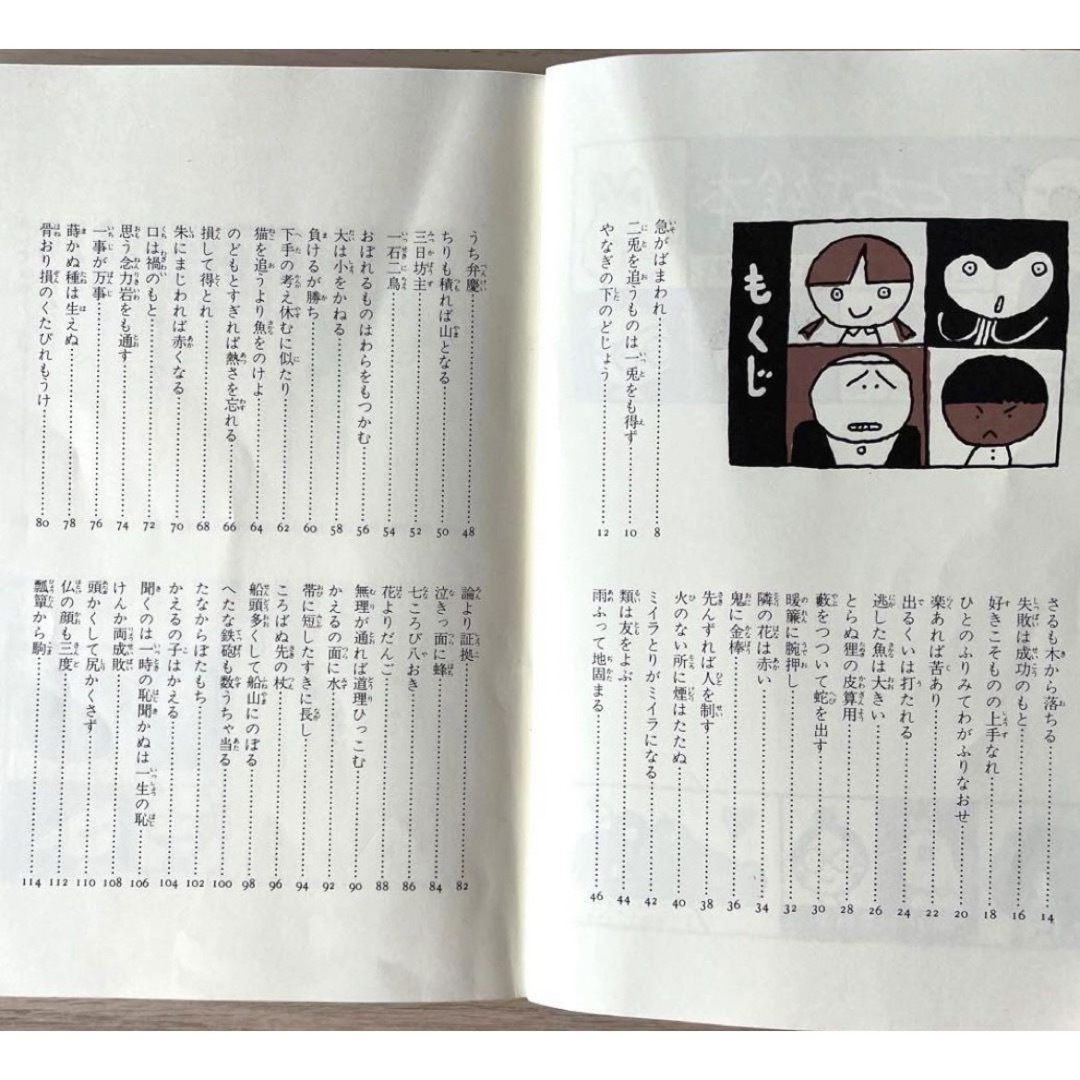 もくじ
急がばまわれ 8
二兎を追うものは一兎をも得ず 10
やなぎの下のどじょう 12
さるも木から落ちる 14
失敗は成功のもと 16
好きこそものの上手なれ 18
ひとのふりみてわがふりなおせ 20
楽あれば苦あり 22
出るくいは打たれる 24
逃した魚は大きい 26
とらぬ狸の皮算用 28
藪をつついて蛇を出す 30
暖簾に腕押し 32
隣の花は赤い 34
鬼に金棒 36
先んずれば人を制す 38
火のない所に煙はたたぬ 40
ミイラとりがミイラになる 42
類は友をよぶ 44
雨ふって地固まる 46
うち弁慶 48
ちりも積れば山となる 50
三日坊主 52
一石二鳥 54
おぼれるものはわらをもつかむ 56
大は小をかねる 58
負けるが勝ち 60
下手の考え休むに似たり 62
猫を追うより魚をのけよ 64
のどもとすぎれば熱さを忘れる 66
損して得とれ 68
朱にまじわれば赤くなる 70
口は禍のもと 72
思う念力岩をも通す 74
一事が万事 76
蒔かぬ種は生えぬ 78
骨おり損のくたびれもうけ 80
論より証拠 82
泣きっ面に蜂 84
七ころび八おき 86
花よりだんご 88
無理が通れば道理ひっこむ 90
かえるの面に水 92
帯に短したすきに長し 94
ころばぬ先の杖 96
船頭多くして船山にのぼる 98
へたな鉄砲も数うちゃ当る 100
たなからぼたもち 102
かえるの子はかえる 104
聞くのは一時の恥聞かぬは一生の恥 106
けんか両成敗 108
頭かくして尻かくさず 110
仏の顔も三度 112
瓢簞から駒 114